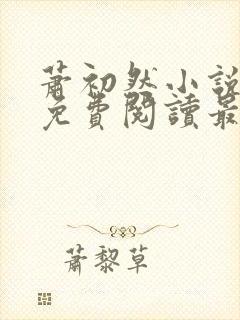 蕭初然小說
免費閱讀最
蕭黎草